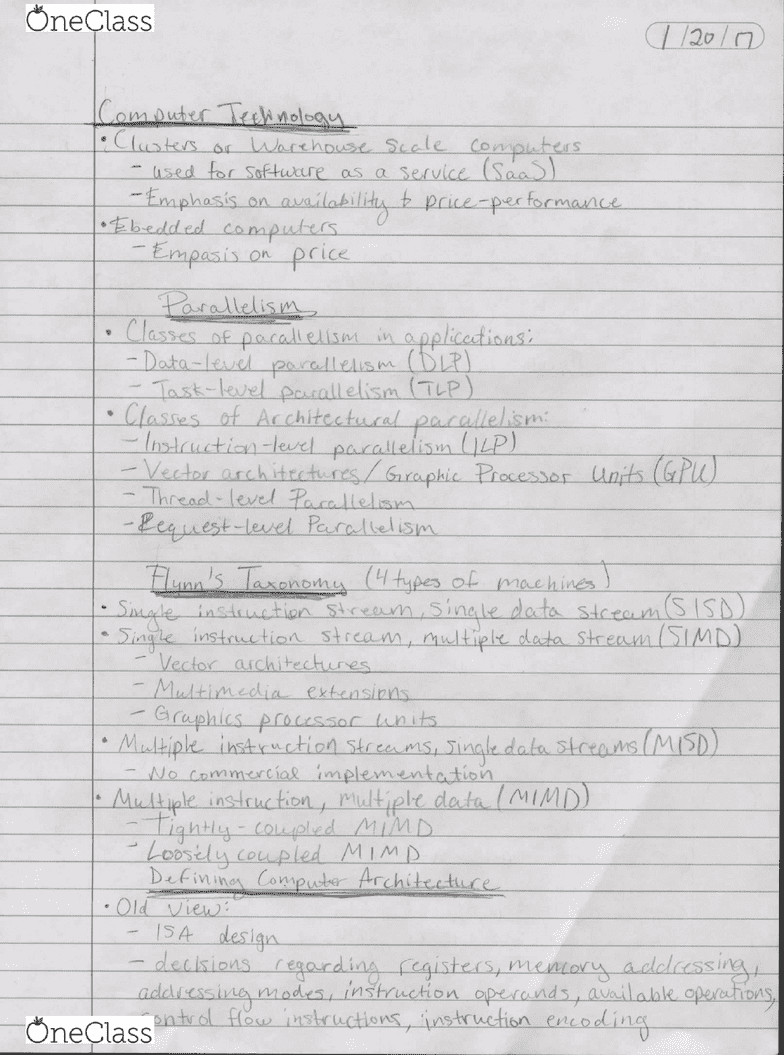 OneClass
1/20/17
Computer Technology
• Clusters or Warehouse Scale computers
- used for software as a service (SaaS)
- Emphasis on availability & price-performance
• Ebedded computers
- Empasis on price
Parallelism
• Classes of parallelism in applications:
- Data-level parallelism (DLP)
- Task-level parallelism (TLP)
• Classes of Architectural parallelism:
- Instruction-level parallelism (ILP)
- Vector architectures/Graphic Processor Units (GPU)
- Thread-level Parallelism
- Request-level Parallelism
Flynn's Taxonomy (4 types of machines)
• Single instruction stream, single data stream (SISD)
• Single instruction stream, multiple data stream (SIMD)
- Vector architectures
- Multimedia extensions
- Graphics processor units
• Multiple instruction streams, single data streams (MISD)
- No commercial implementation
• Multiple instruction, multiple data (MIMD)
- Tightly-coupled MIMD
- Loosely coupled MIMD
Defining Computer Architecture
• Old view:
- ISA design
- decisions regarding registers, memory addressing,
addressing modes, instruction operands, available operations,
control flow instructions, instruction encoding
OneClass